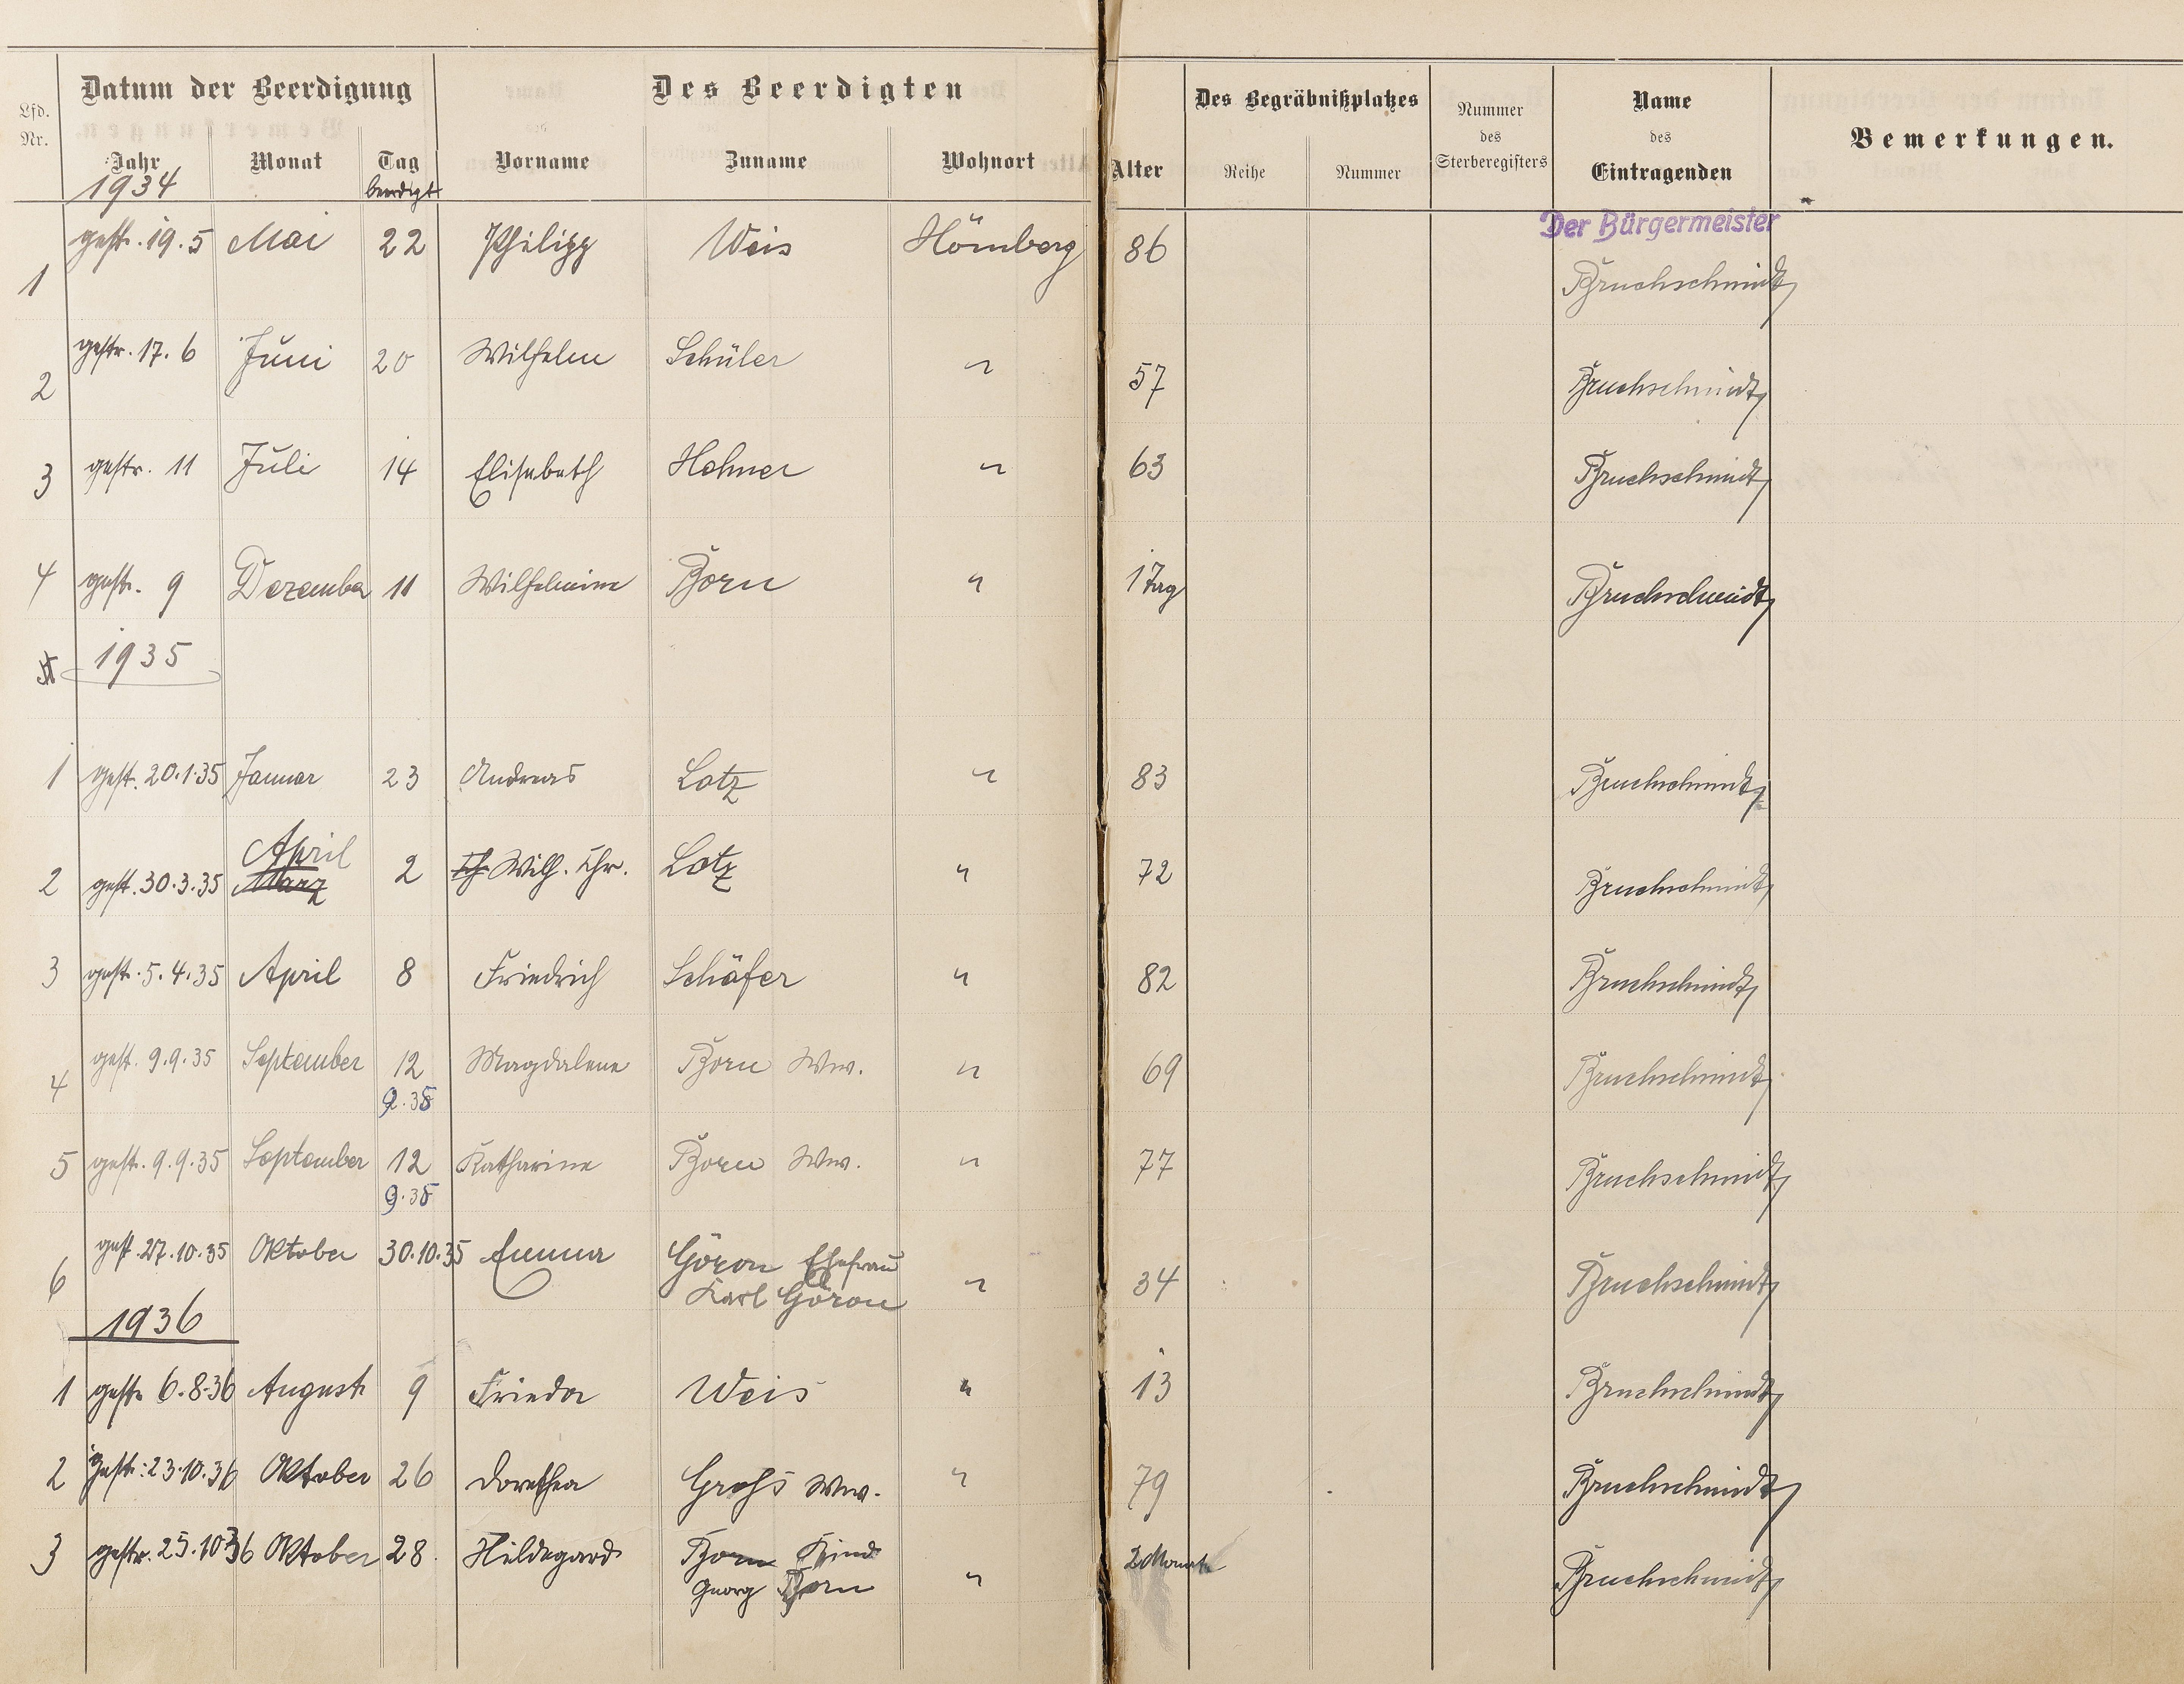 Datum der Beerdigung Des Beerdigten Des Begräbnißplatzes Nummer des Sterberegisters Name des Eintragenden Bemerkungen.
Lfd. Nr. Jahr Monat Tag Vorname Zuname Wohnort Alter Reihe Nummer
1934 beerdigt
Der Bürgermeister
1 gestr. 19.5 Mai 22 Philipp Weis Hömberg 86 Bruchschmidt
2 gestr. 17.6 Juni 20 Wilhelm Schüler " 57 Bruchschmidt
3 gestr. 11 Juli 14 Elisabeth Hehner " 63 Bruchschmidt
4 gestr. 9 Dezember 11 Wilhelmine Born " 1 Tag Bruchschmidt
1935
1 gest. 20.1.35 Januar 23 Andreas Lotz " 83 Bruchschmidt
April
2 gest. 30.3.35 März 2 Wilh. Chr. Lotz " 72 Bruchschmidt
3 gestr. 5.4.35 April 8 Friedrich Schäfer " 82 Bruchschmidt
4 gest. 9.9.35 September 12 Magdalene Born Ww. " 69 Bruchschmidt
9.35
5 gestr. 9.9.35 September 12 Katharine Born Ww. " 77 Bruchschmidt
9.35
6 gest. 27.10.35 Oktober 30.10.35 Emma Göron Ehefrau " 34 Bruchschmidt
Karl Göron
1936
1 gestr. 6.8.36 August 9 Frieda Weis " 13 Bruchschmidt
2 gestr. 23.10.36 Oktober 26 Dorethea Groß Ww. " 79 Bruchschmidt
3 gestr. 25.10 36 Oktober 28. Hildegard Born Kind " 2 Monate Bruchschmidt
Georg Born